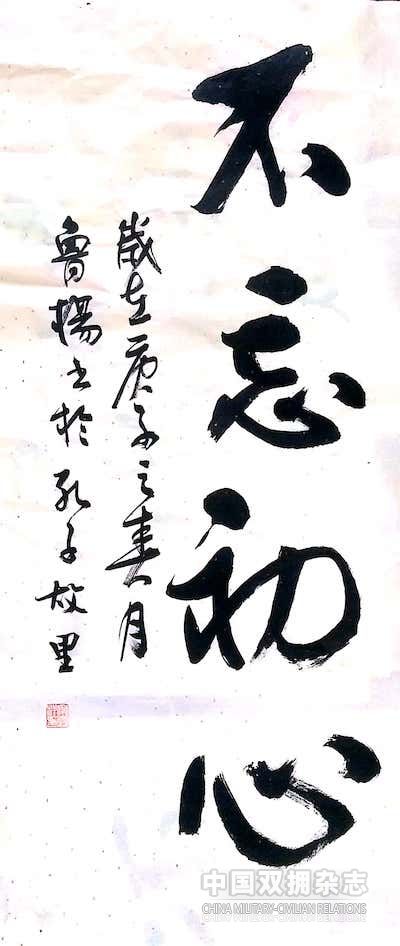 不忘初心
歲在庚子之春月
魯楊书於孔子故里
中国双拥杂志
CHINA MILITARY-CIVILIAN RELATIONS